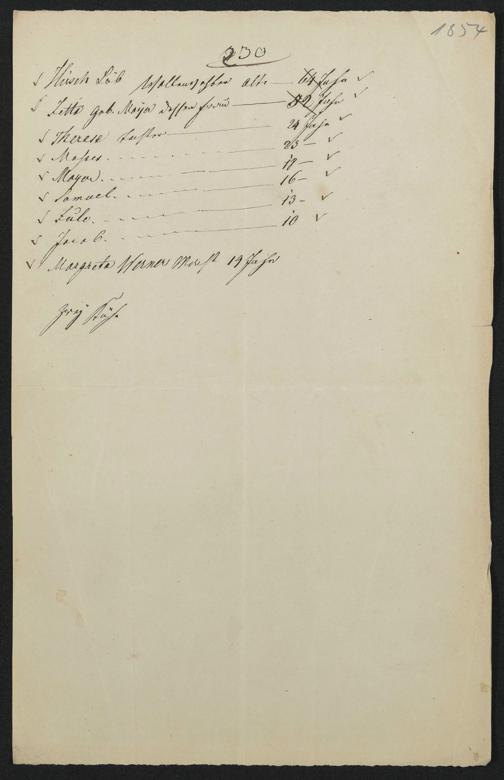 1854
230
Hirsch Löb Wollenweber alt — 64 Jahr
Zetta geb. Maija dessen Frau — 52 Jahr
Therese Tochter — 24 Jahr
Moses — 23 —
Mayer — 18 —
Samuel — 16 —
Zule — 13 —
Jacob — 10
Margreta Werner Magd 19 Jahr
zwej Kühe